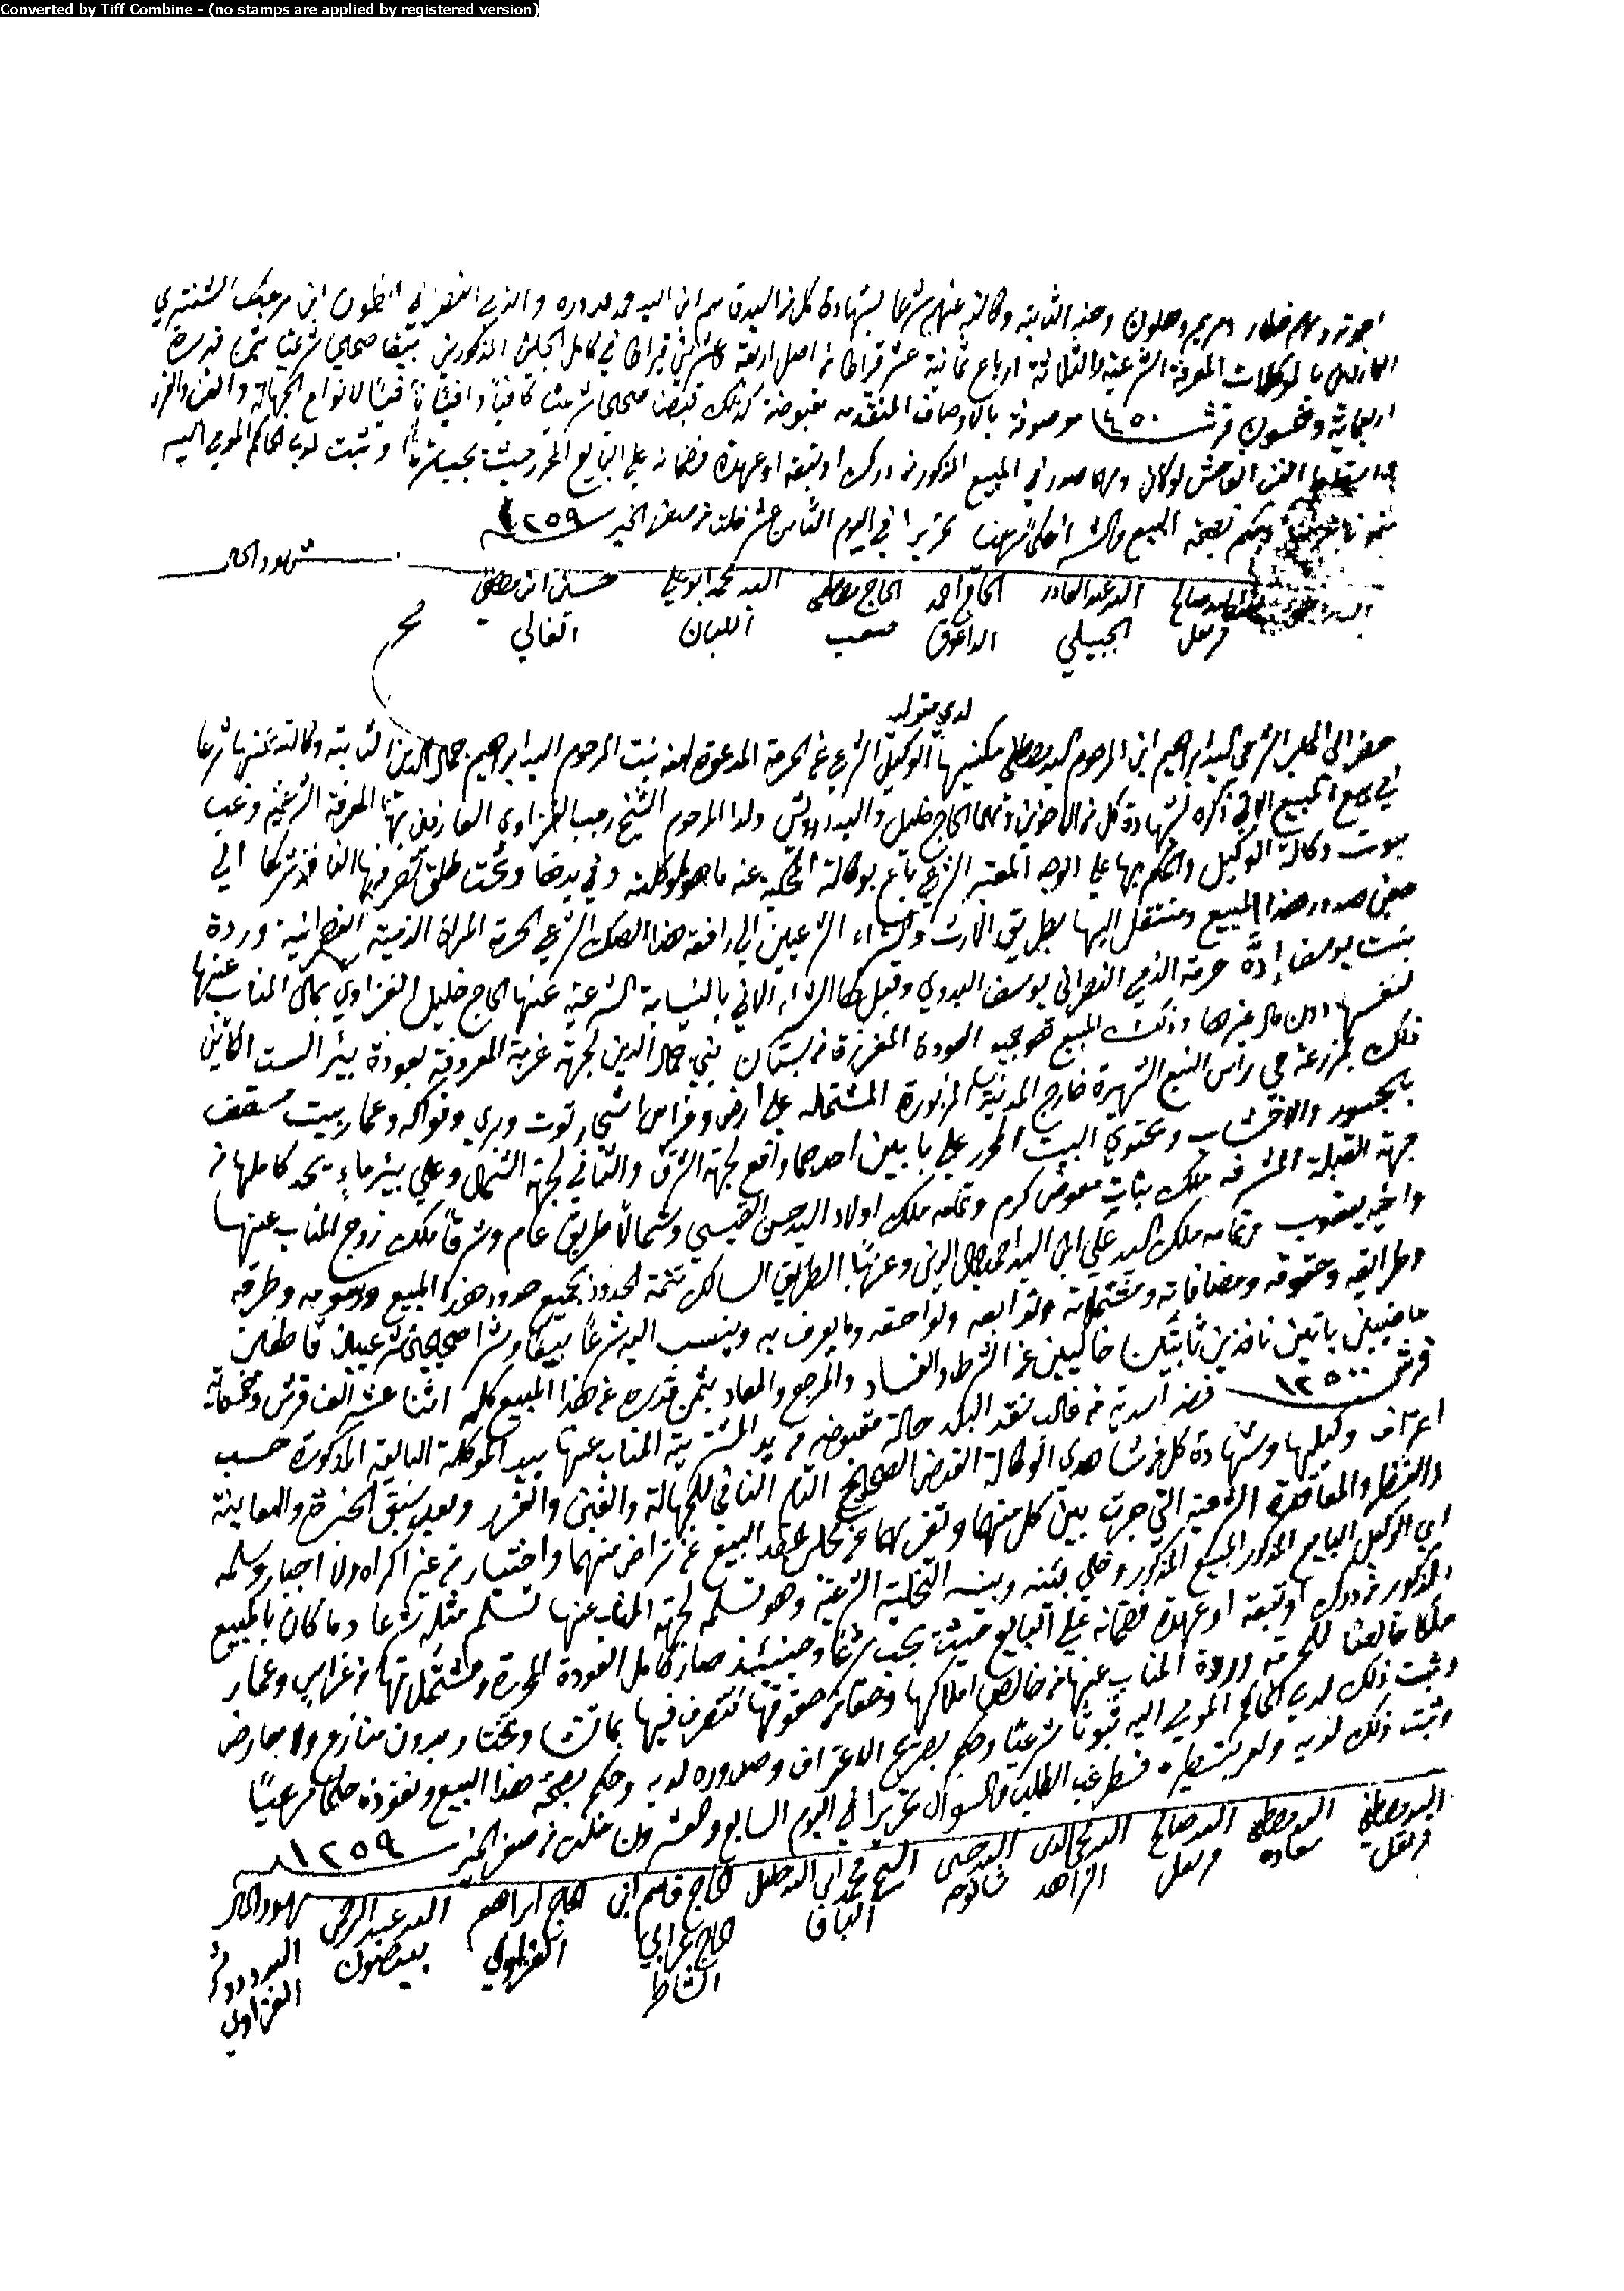 Converted by Tiff Combine - (no stamps are applied by registered version)
اخوته وهم مريم وهلون وحنه الثابته وكالته عنهم شرعا بشهادة كل من السيد قاسم ابن السيد محمد دوره والذمي النصراني انطون ابن الشنتيري
العارفين بالموكلات المعرفة الشرعية والثلاثة ارباع ثمانية عشر قراطا من اصل اربعة وعشرين قيراطا في كامل المذكورين بيعا صحيحا شرعيا بثمن قدره
اربعماية وخمسون قرش ١٤٥٠ موصوفة بالاوصاف المتقدمه مقبوضة كذلك قبضا صحيحا شرعيا كافيا وافيا نافيا لانواع الجهالة والغبن والغرر
الغبن الفاحش لو كان ومهما صدر في المبيع المذكور من درك او تبعه او عهدة فضمانه على البايع المحرر حيث يجب شرعا وثبت لدي الحاكم المومى اليه
وحكم بصحة المبيع والشراء تحريرا في اليوم الثامن عشر خلت من صفر الخير سنة ١٢٥٩
شهود الحال
السيد صالح السيد عبد القادر الحاج احمد الحاج مصطفى السيد محمد ابو علي حسين ابن مصطفى
قرنفل الجبيلي الداعوق صعب اللبان الغالي
صح
لدي متوليه
حضر الى المجلس الشرعي السيد ابراهيم ابن المرحوم السيد مصطفى الوكيل الشرعي عن الحرمة المدعوة امنه بنت المرحوم السيد ابراهيم جمال الدين الثابته وكالته عنها شرعا
في جميع المبيع الاتي ذكره بشهادة كل من الاخوين وهما الحاج خليل والسيد درويش ولدا المرحوم الشيخ رجب الغزاوي العارفين بها المعرفة الشرعية وغب
ثبوت وكالة الوكيل والحكم بها على الوجه المعتبر الشرعي باع بوكالته المحكية عنه ما هو لموكلته وفي يدها وتحت طلق تصرفها النافذ شرعا الى
حين صدور هذا المبيع ومنتقل اليها بطريق الارث والشراء الشرعيين الى رافعة هذا الصك الشرعي الحرمة المراة الذمية النصرانية وردة
بنت يوسف إدّه حرمة الذمي النصراني يوسف البدوي وقبل لها الشراء الاتي بالنيابة الشرعية عنها الحاج خليل الغزاوي بمال المناب عنها
لنفسها دون مال غيرها وذلك المبيع هو جميع العودة المفرزة من بستان بني جمال الدين لجهة غربه المعروفة بعودة بير الست الكائن
ذلك بمزرعة في راس النبع الشهيرة خارج المدينة المزبورة المشتملة على ارض وغراس اشجار توت وبري وفواكه وعمار بيت مسقف
بالجسور والاخشاب ويحتوي البيت المحرر على بابين احدهما واقع لجهة الشرق والثاني لجهة الشمال وعلى بير ماء يحد كاملها من
جهة القبلة المشرفه ملك بنات معوض كرم وتمامه ملك اولاد السيد حسن القيسي وشمالا طريق عام وشرقا ملك زوج المناب عنها
واخيه يعقوب وتمامه ملك السيد علي ابن السيد احمد جمال الدين وغربا الطريق السالك تتمة الحدود بجميع حدود هذا المبيع ورسومه وطرقه
وطرايقه وحقوقه ومضافاته ومشتملاته وتوابعه ولواحقه وما يعرف به وينسب اليه شرعا بيعا وشرا صحيحين شرعيين قاطعين
ماضيين باتين نافذين ثابتين خاليين عن الشرط والفساد والمرجع والمعاد بثمن قدره عن هذا المبيع كله اثنا عشر الف قرش وخمسماية
قرش ١٢٥٠٠ فضه اسدية من غالب نقد البلد حالة مقبوضه من يد المشترية المناب عنها بيد الموكلة البايعه المذكورة حسب
اعتراف وكيلها وشهادة كل من شاهدي الوكالة القبض الصحيح التام النافي للجهالة والغبن والغرر وبعد سبق الخبرة والمعاينة
والنظر والمعاقدة الشرعية التي جرت بين كل منهما وتفرقهما عن مجلس عقد البيع عن تراض منهما واختيار من غير اكراه ولا اجبار وسلم
اي الوكيل البايع المذكور المبيع المذكور وخلى بينه وبينه التخلية الشرعية وهو تسلمه لجهة المناب عنها تسلم مثله شرعا وما كان بالمبيع
المذكور من درك او تبعة او عهدة فضمانه على البايع حيث يجب شرعا وحينئذ صار كامل العودة المحررة ومشتملاتها من غراس وعمار
ملكا خالصا للحرمه وردة المناب عنها من خالص املاكها وحقا من حقوقها تتصرف فيها بما تشا وتختار بدون منازع ولا معارض
وثبت ذلك لدي الحاكم المومى اليه ثبوتا شرعيا وحكم بصريح الاعتراف وصدوره لديه وحكم بصحة هذا البيع ونفوذه حكما شرعيا
وثبت ذلك لديه فسطر غب الطلب والسؤال تحريرا في اليوم السابع والعشرون خلت من صفر الخير سنة ١٢٥٩
شهود الحال
السيد مصطفى السيد مصطفى السيد صالح السيد محي الدين السيد حسين الشيخ محمد ابن السيد خليل الحاج قاسم ابن الحاج ابراهيم السيد عبد الرحمن السيد درويش
قرنفل سعاده قرنفل الزاهد شاتوحه الباف الحاج عرابي الغزاوي بيضون الغزاوي
الشاطر